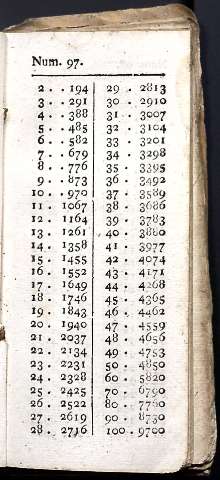 Num. 97.
2 . . 194 29 . 2813
3 . . 291 30 . 2910
4 . . 388 31 . 3007
5 . . 485 32 . 3104
6 . . 582 33 . 3201
7 . . 679 34 . 3298
8 . . 776 35 . 3395
9 . . 873 36 . 3492
10 . . 970 37 . 3589
11 . 1067 38 . 3686
12 . 1164 39 . 3783
13 . 1261 40 . 3880
14 . 1358 41 . 3977
15 . 1455 42 . 4074
16 . 1552 43 . 4171
17 . 1649 44 . 4268
18 . 1746 45 . 4365
19 . 1843 46 . 4462
20 . 1940 47 . 4559
21 . 2037 48 . 4656
22 . 2134 49 . 4753
23 . 2231 50 . 4850
24 . 2328 60 . 5820
25 . 2425 70 . 6790
26 . 2522 80 . 7760
27 . 2619 90 . 8730
28 . 2716 100 . 9700